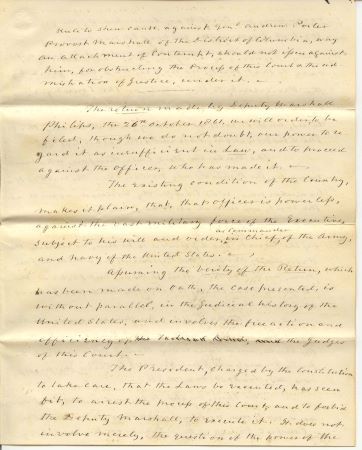 Rule to show cause, against Genl. Andrew Porter
Provost Marshall of the District of Columbia, why
an attachment of Contempt, should not issue against
him, for obstructing the Process of this Court & the ad-
ministration of Justice, under it. -
The return made by Deputy Marshall
Philips, the 26th October 1861, we will order, to be
filed, though we do not doubt, our power to re-
gard it as insufficient in Law, and to proceed
against the Officer, who has made it. -
The Existing condition of the Country,
makes it plain, that, that Officer is powerless,
against the vast military force of the Executive,
subject to his will and order, as Commander
in Chief, of the Army,
and Navy of the United States. -
Assuming the verity of the Return, which
has been made on Oath, the case presented, is
without parallel, in the Judicial history of the
United States, and involves the free action and
efficiency of the Judges
of this Court. -
The President, charged by the Constitution
to take care, that the Laws be executed, has seen
fit, to arrest the process of this Court, and to forbid
the Deputy Marshall, to execute it. It does not
involve merely, the question of the power of the